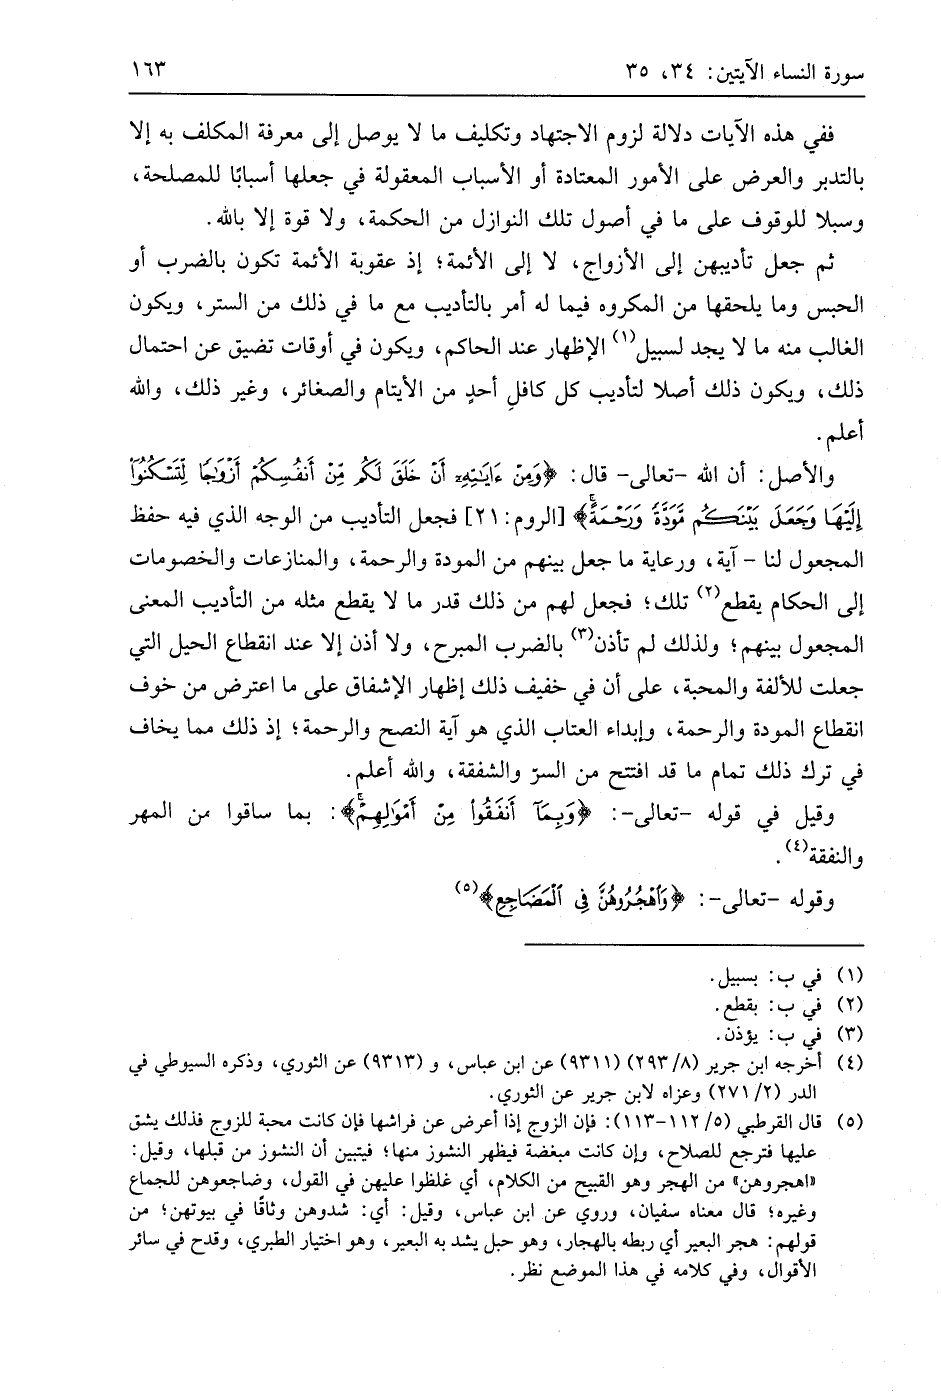 سورة النساء الآيتين: ٣٤، ٣٥
١٦٣
ففي هذه الآيات دلالة لزوم الاجتهاد وتكليف ما لا يوصل إلى معرفة المكلف به إلا
بالتدبر والعرض على الأمور المعتادة أو الأسباب المعقولة في جعلها أسبابًا للمصلحة،
وسبلا للوقوف على ما في أصول تلك النوازل من الحكمة، ولا قوة إلا بالله.
ثم جعل تأديبهن إلى الأزواج، لا إلى الأئمة؛ إذ عقوبة الأئمة تكون بالضرب أو
الحبس وما يلحقها من المكروه فيما له أمر بالتأديب مع ما في ذلك من الستر، ويكون
الغالب منه ما لا يجد لسبيل(١) الإظهار عند الحاكم، ويكون في أوقات تضيق عن احتمال
ذلك، ويكون ذلك أصلا لتأديب كل كافلِ أحدٍ من الأيتام والصغائر، وغير ذلك، والله
أعلم.
والأصل: أن الله -تعالى- قال: ﴿وَمِنْ ءَايَٰتِهِۦٓ أَنْ خَلَقَ لَكُم مِّنْ أَنفُسِكُمْ أَزْوَٰجًا لِّتَسْكُنُوٓا۟
إِلَيْهَا وَجَعَلَ بَيْنَكُم مَّوَدَّةً وَرَحْمَةً﴾ [الروم: ٢١] فجعل التأديب من الوجه الذي فيه حفظ
المجعول لنا - آية، ورعاية ما جعل بينهم من المودة والرحمة، والمنازعات والخصومات
إلى الحكام يقطع(٢) تلك؛ فجعل لهم من ذلك قدر ما لا يقطع مثله من التأديب المعنى
المجعول بينهم؛ ولذلك لم تأذن(٣) بالضرب المبرح، ولا أذن إلا عند انقطاع الحيل التي
جعلت للألفة والمحبة، على أن في خفيف ذلك إظهار الإشفاق على ما اعترض من خوف
انقطاع المودة والرحمة، وإبداء العتاب الذي هو آية النصح والرحمة؛ إذ ذلك مما يخاف
في ترك ذلك تمام ما قد افتتح من السرّ والشفقة، والله أعلم.
وقيل في قوله -تعالى-: ﴿وَبِمَآ أَنفَقُوا۟ مِنْ أَمْوَٰلِهِمْ﴾: بما ساقوا من المهر
والنفقة(٤).
وقوله -تعالى-: ﴿وَٱهْجُرُوهُنَّ فِى ٱلْمَضَاجِعِ﴾(٥)
(١) في ب: بسبيل.
(٢) في ب: بقطع.
(٣) في ب: يؤذن.
(٤) أخرجه ابن جرير (٨/ ٢٩٣) (٩٣١١) عن ابن عباس، و (٩٣١٣) عن الثوري، وذكره السيوطي في
الدر (٢/ ٢٧١) وعزاه لابن جرير عن الثوري.
(٥) قال القرطبي (٥/ ١١٢-١١٣): فإن الزوج إذا أعرض عن فراشها فإن كانت محبة للزوج فذلك يشق
عليها فترجع للصلاح، وإن كانت مبغضة فيظهر النشوز منها؛ فيتبين أن النشوز من قبلها، وقيل:
«اهجروهن» من الهجر وهو القبيح من الكلام، أي غلظوا عليهن في القول، وضاجعوهن للجماع
وغيره؛ قال معناه سفيان، وروي عن ابن عباس، وقيل: أي: شدوهن وثاقًا في بيوتهن؛ من
قولهم: هجر البعير أي ربطه بالهجار، وهو حبل يشد به البعير، وهو اختيار الطبري، وقدح في سائر
الأقوال، وفي كلامه في هذا الموضع نظر.